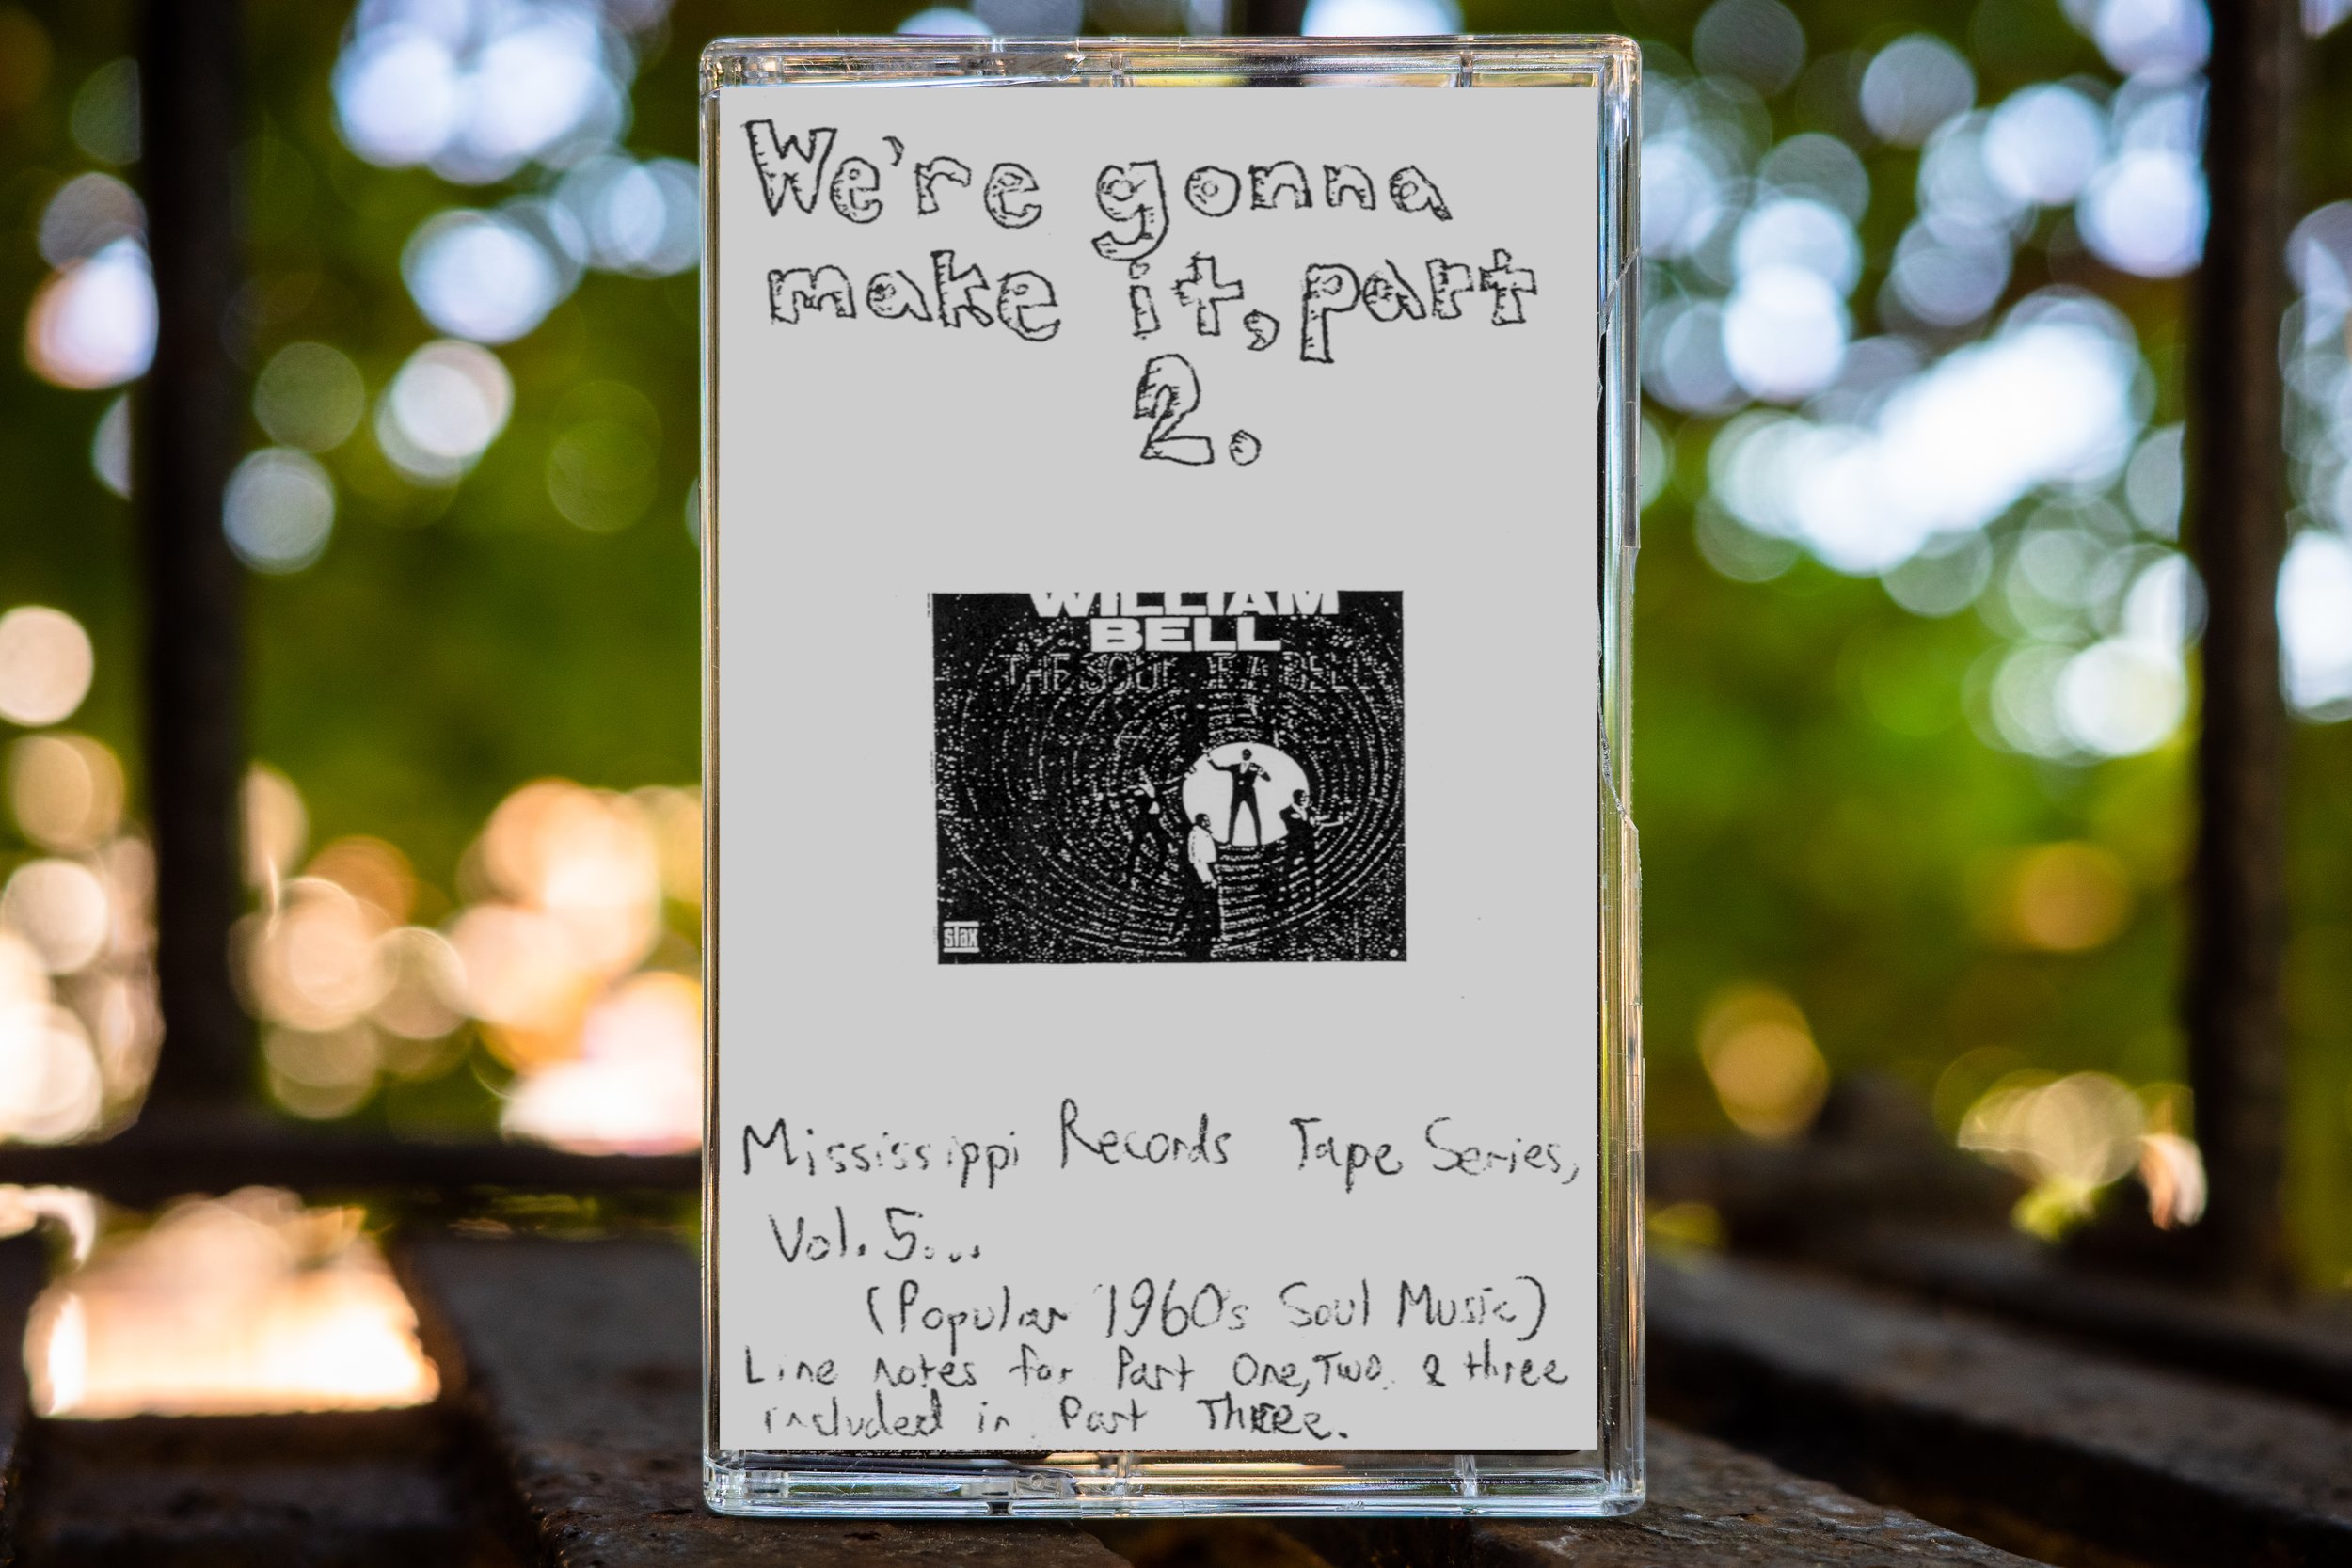 We're gonna
make it, part
2.
WILLIAM
BELL
THE SOUL OF A BELL
stax
Mississippi Records Tape Series,
Vol. 5...
(Popular 1960's Soul Music)
Line notes for Part One, Two & three
included in Part Three.